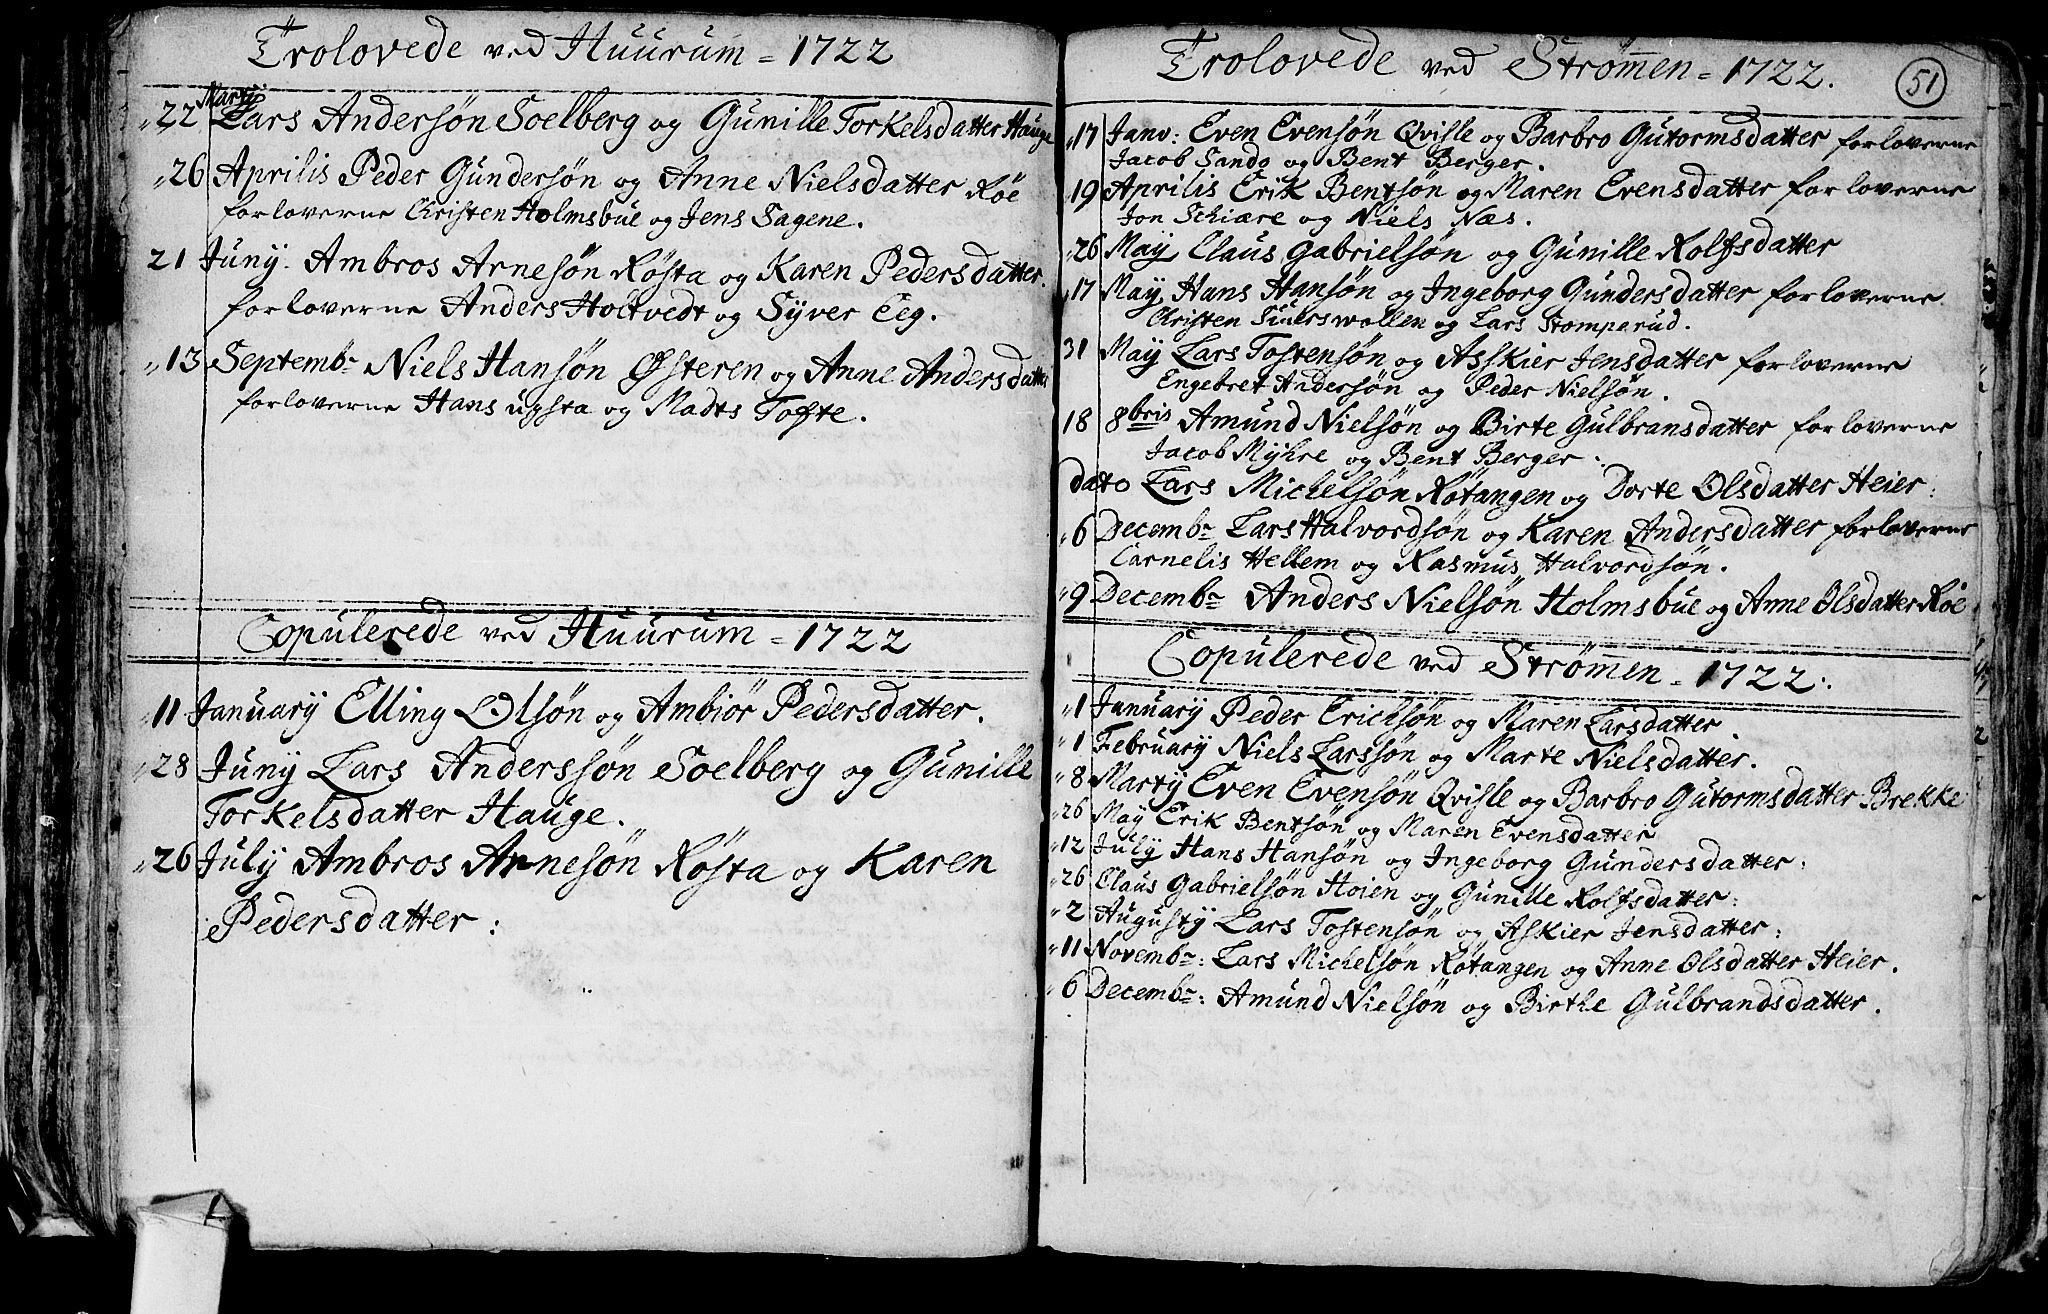 Trolovede ved Huurum = 1722
Marty
22 Lars Andersøn Soelberg og Gunille Torkelsdatter Hauge
26 Aprilis Peder Gundersøn og Anne Nielsdatter Röe
forloverne Christen Holmsbue og Jens Sagene.
21 Juny. Ambros Arnesøn Røsta og Karen Pedersdatter.
forloverne Anders Holtvedt og Syver Eeg.
13 Septembr Niels Hansøn Østeren og Anne Andersdatter
forloverne Hans upsta og Madts Tofte.
Copulerede ved Huurum = 1722
11 January Elling Olsøn og Ambiør Pedersdatter.
28 Juny Lars Anderssøn Soelberg og Gunille
Torkelsdatter Hauge.
26 July Ambros Arnesøn Røsta og Karen
Pedersdatter:
Trolovede ved Strømen = 1722.
51
17 Janv: Even Evensøn Qvisle og Barbro Gutormsdatter forloverne
Jacob Sando og Bent Berger.
19 Aprilis Erik Bentsøn og Maren Evensdatter forloverne
Jon Schiære og Niels Næs.
26 May Claus Gabrielsøn og Gunille Rolfsdatter
17 May Hans Hansøn og Ingeborg Gundersdatter forloverne
Christen og Lars Stomperud.
31 May Lars Tostensøn og Asskier Jensdatter forloverne
Engebret Andersøn og Peder Nielsøn.
18 8bris Amund Nielsøn og Birte Gulbransdatter forloverne
Jacob Myhre og Bent Berger:
dato Lars Michelsøn Røtangen og Dorte Olsdatter Heier:
6 Decembr Lars Halvordsøn og Karen Andersdatter forloverne
Carnelis Hellem og Rasmus Halvordsøn.
9 Decembr Anders Nielsøn Holmsbue og Anne Olsdatter Röe
Copulerede ved Strømen = 1722:.
1 January Peder Erichsøn og Maren Larsdatter.
1 February Niels Larssøn og Marte Nielsdatter.
8 Marty Even Evensøn Qvisle og Barbro Gutormsdatter Brekke
26 May Erik Bentsøn og Maren Evensdatter
12 July Hans Hansøn og Ingeborg Gundersdatter:
26 Claus Gabrielsøn Hoien og Gunille Rolfsdatter:
2 Augusty Lars Tostensøn og Askier Jensdatter:
11 Novembr: Lars Michelsøn Røtangen og Anne Olsdatter Heier.
6 Decembr: Amund Nielsøn og Birthe Gulbrandsdatter.